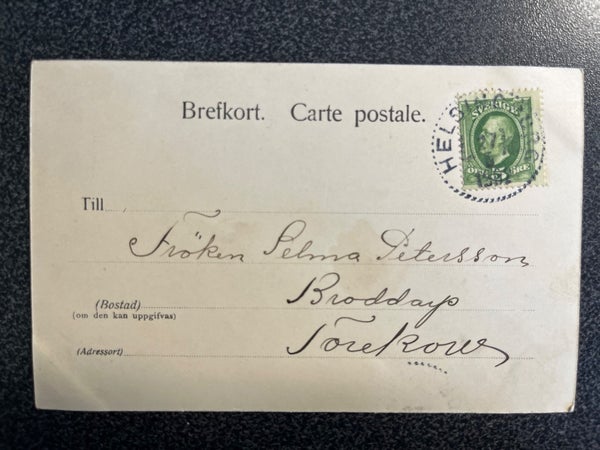 Brefkort. Carte postale.
SVERIGE
HELSINGBORG
27 1
Till
Fröken Selma Petersson
(Bostad) Broddarp
(om den kan uppgifvas)
(Adressort) Torekow